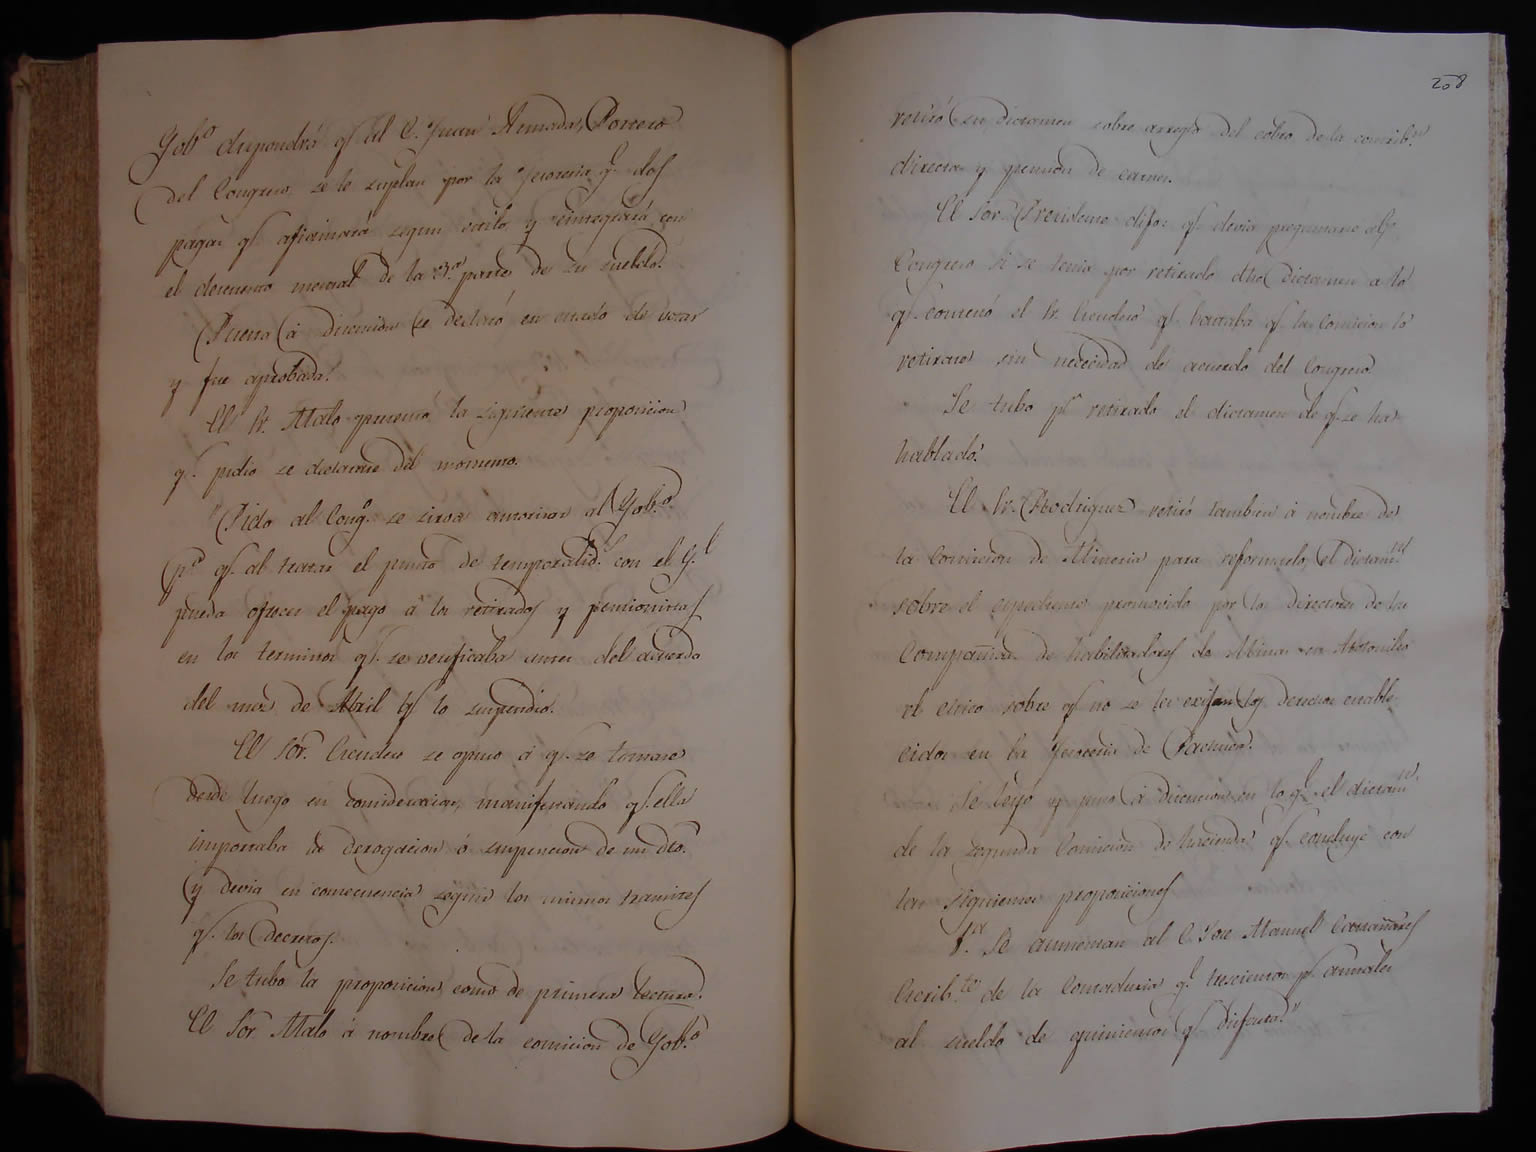 Gob.º dispondrá qᵉ al C. Juan Armada, Portero
del Congreso, se le suplan por la Tesoreria gˡ dos
pagas qᵉ afianzará segun estilo y reintegrará con
el descuento mensal de la 3.ª parte de su sueldo.
Puesta á discusion se declaró en estado de votar
y fue aprobada.
El Sr. Malo presentó la siguiente proposicion
qᵉ pidio se dictamine del momento.
"Pido al Congº se sirva autorizar al Gob.º
pª qᵉ al tratar el punto de temporalidˢ con el Gˡ
pueda ofrecer el pago á los retirados y pensionistas
en los terminos qᵉ se verificaba antes del acuerdo
del mes de Abril qᵉ lo suspendió.
El Sor. Escudero se opuso á qᵉ se tomase
desde luego en consideracion, manifestando qᵉ ella
importaba la derogacion ó suspencion de un dto.
y devia en consecuencia seguir los mismos tramites
qᵉ los Decretos.
Se tubo la proposicion como de primera lectura.
El Sor. Malo á nombre de la comicion de Gob.º
208
retiró su dictamen sobre arreglo del cobro de la contrib.ⁿ
directa y pension de carnes.
El Sor. Presidente dijo: qᵉ devia preguntarse al
Congreso si se tenia por retirado dho Dictamen a lo
qᵉ contestó el Sr. Escudero qᵉ bastaba qᵉ la Comicion lo
retirase sin necesidad de acuerdo del Congreso
Se tubo pʳ retirado el dictamen de qᵉ se ha
hablado.
El Sr. Rodriguez retiró tambien á nombre de
la Comicion de Mineria para reformarlo, el dictamⁿ
sobre el espediente promovido por los directores de las
Compañias de habilitadores de Minas en Atotonilco
el chico sobre qᵉ no se les exijan los derechos estable-
cidos en la Tesoreria de Pachuca.
Se leyo y puso á discucion en lo gˡ el dictamⁿ
de la segunda Comicion de hacienda qᵉ concluye con
las siguientes proposiciones
1.ª Se aumentan al C. Jose Manuel Castañares
Escrib.ᵗᵉ de la Contaduria gˡ trescientos pˢ anuales
al sueldo de quinientos qᵉ disfruta."